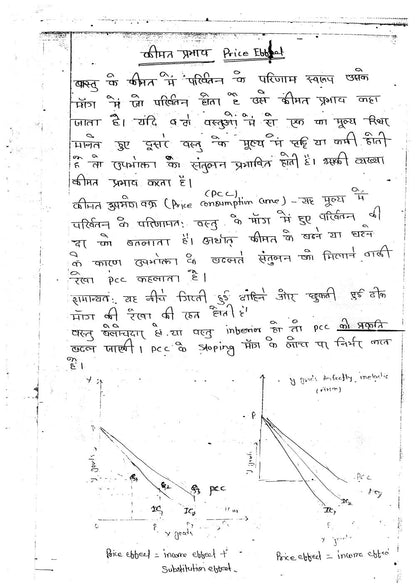 कीमत प्रभाव Price Effect
वस्तु के कीमत में परिवर्तन के परिणाम स्वरूप उसके
माँग में जो परिवर्तन होता है उसे कीमत प्रभाव कहा
जाता है। यदि दो वस्तुओं में से एक का मूल्य स्थिर
मानते हुए दूसरे वस्तु के मूल्य में वृद्धि या कमी होती
है तो उपभोक्ता का संतुलन प्रभावित होती है। इसकी व्याख्या
कीमत प्रभाव करता है।
(PCC)
कीमत उपभोग वक्र (Price consumption curve) - यह मूल्य में
परिवर्तन के परिणामतः वस्तु के माँग में हुए परिवर्तन की
दर को बतलाता है। अर्थात् कीमत के बढ़ने या घटने
के कारण उपभोक्ता के बदलते संतुलन को मिलाने वाली
रेखा PCC कहलाता है।
सामान्यतः यह नीचे गिरती हुई दाहिने ओर झुकती हुई ठीक
माँग की रेखा की तरह होती है।
वस्तु हो या वस्तु inferior हो तो PCC की प्रकृति
बदल जाएगी। PCC के Sloping माँग के लोच पर निर्भर करता
है।
y goods Perfectly inelastic
Y
P
P
y goods
y goods
PCC
PCC
IC₁
IC₂
IC₁
IC₂
x goods
x goods
Price effect = income effect +
Substitution effect.
Price effect = income effect